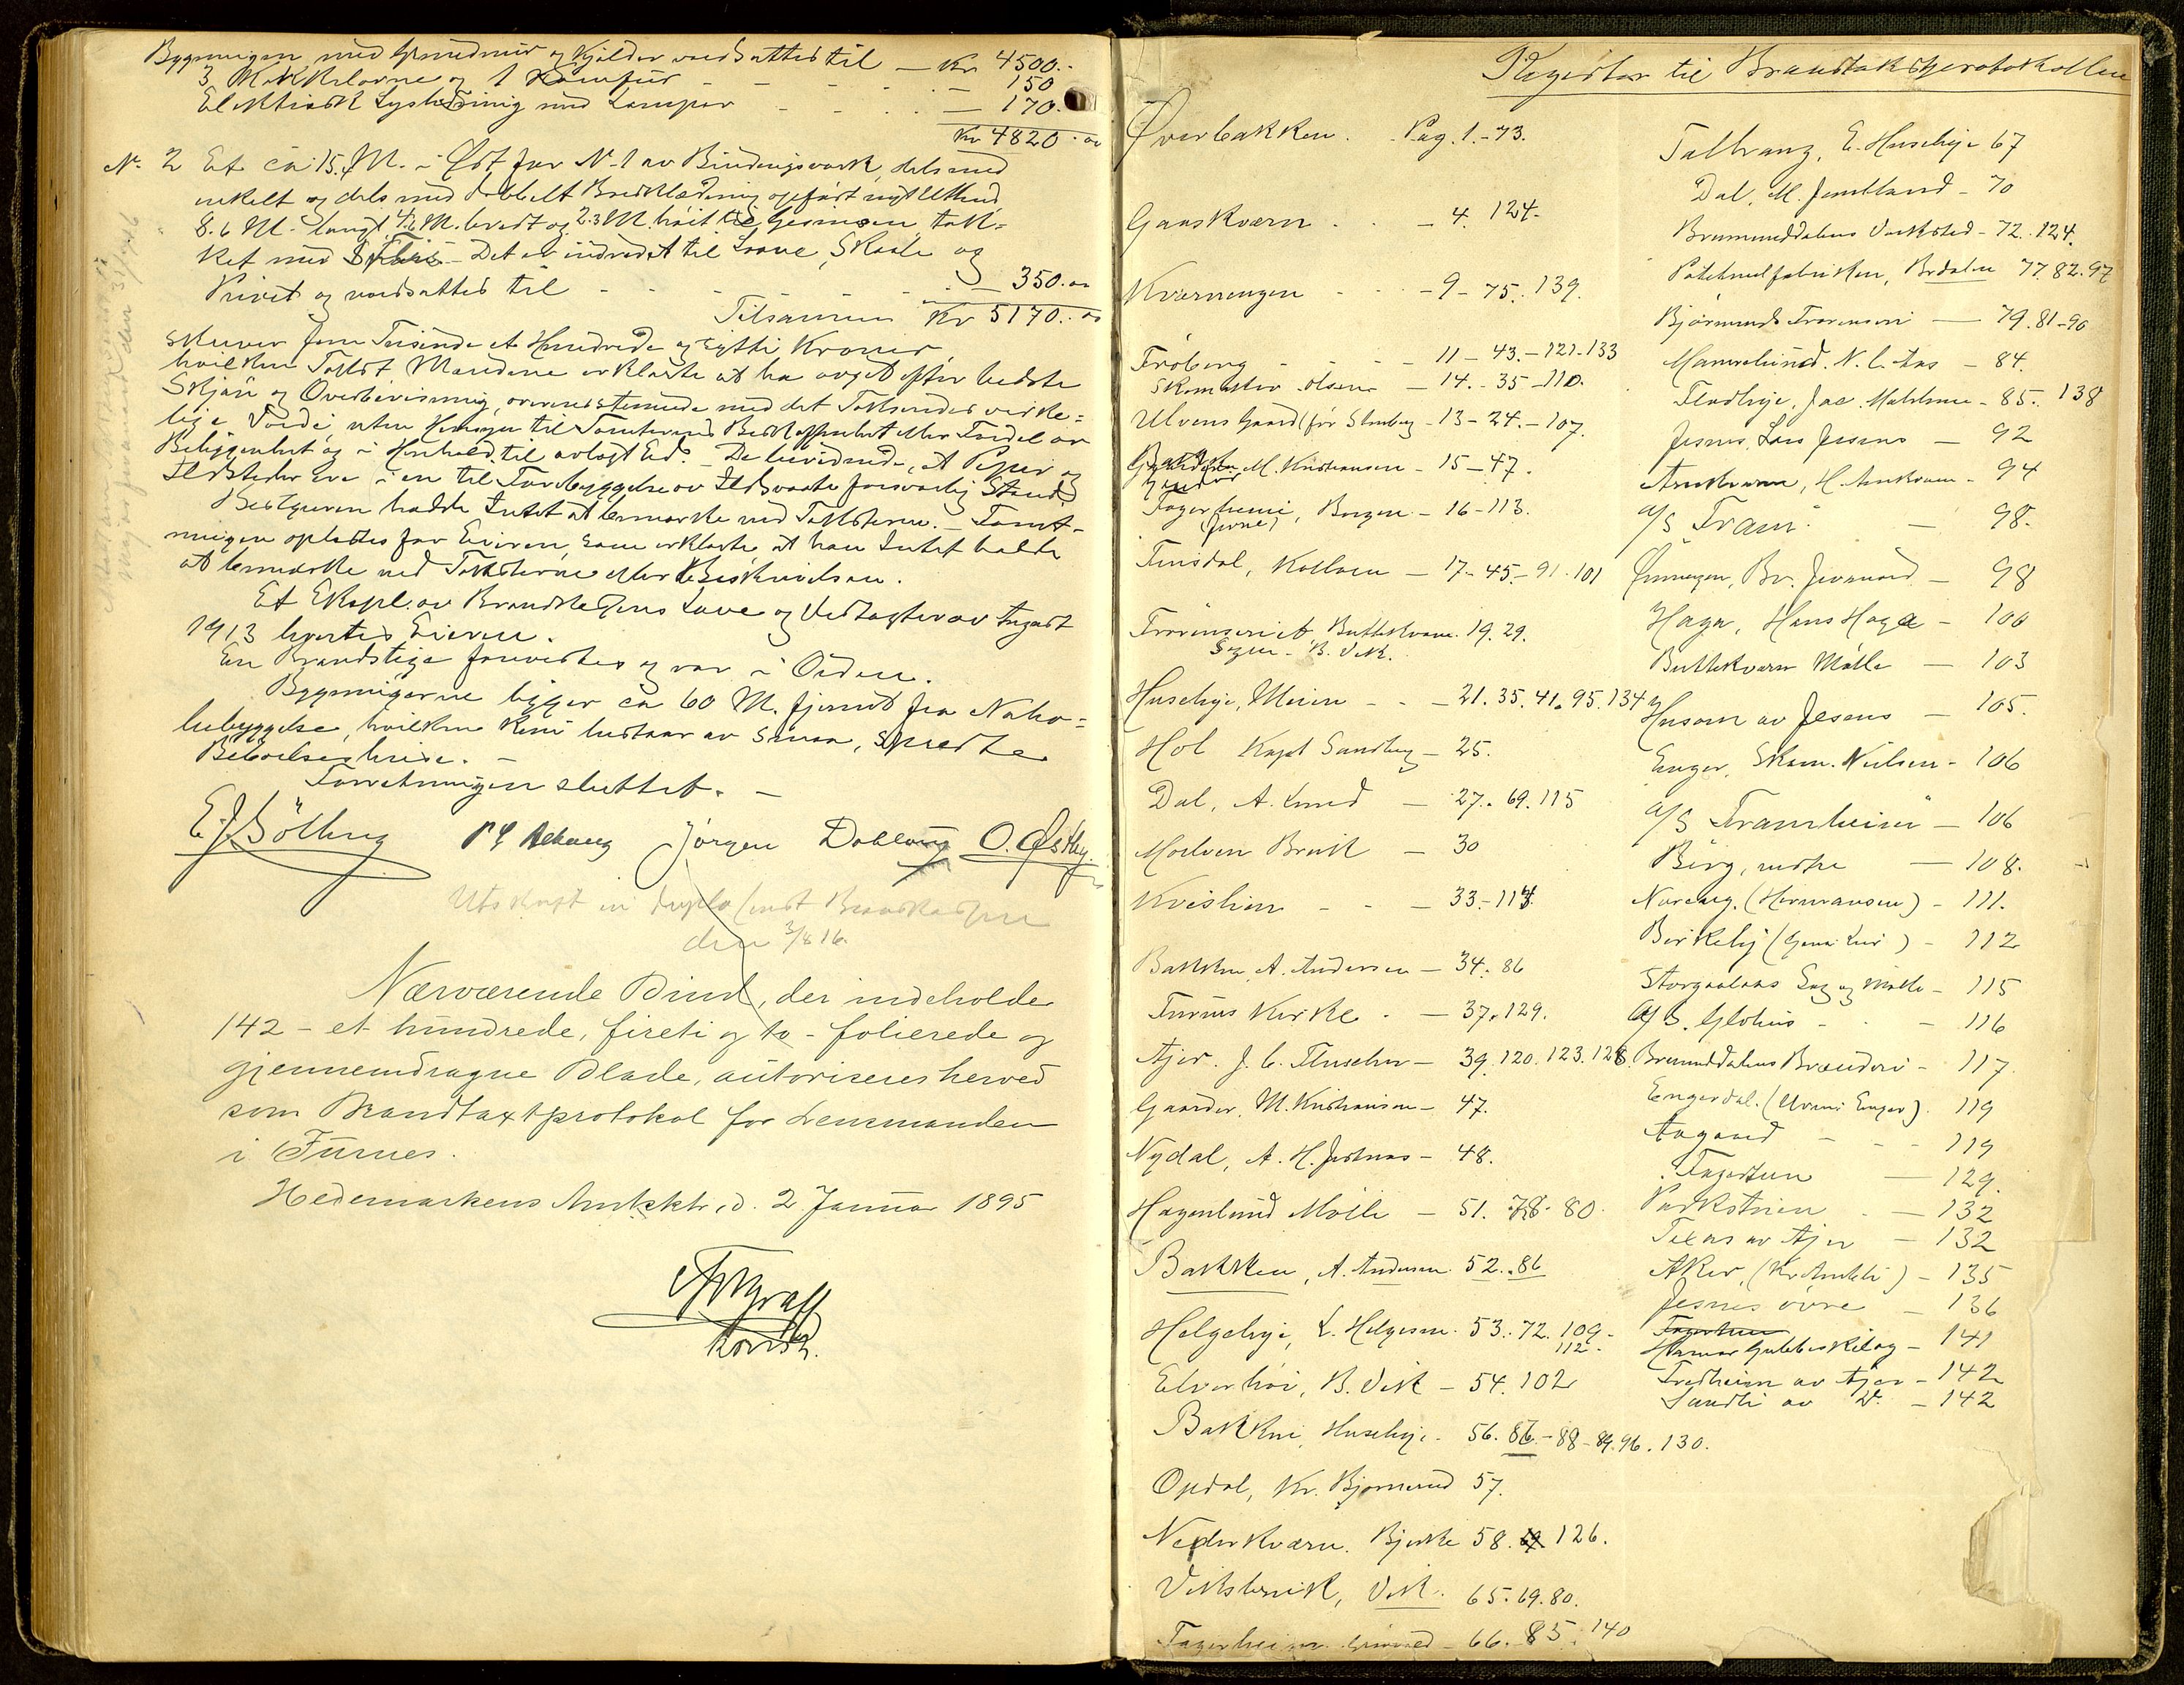 Bygningen med Grundmur og Kjelder værdsattes til — Kr 4500.-
3 Kakkelovne og 1 Komfur - - - — 150
Elektrisk Lysledning med Lamper - - - — 170.-
Kr 4820.00
No. 2 Et ca 15 M. i Øst for No. 1 av Bindingsverk, dels med
enkelt og dels med dobbelt Bordklædning opført nyt Uthus
8.6 M. langt, M. bredt og 2.3 M. høit til Gesimsen, tæk-
ket med Flis. Det er indredet til Laave, Skaale og
Privet og værdsattes til - - - — 350.00
Tilsammen Kr 5170.00
skriver fem Tusinde et Hundrede og sytti Kroner,
hvilken Takst Mændene erklærte at ha avgit efter bedste
Skjøn og Overbevisning, overensstemmende med det Takseredes virke-
lige Værdi uten Hensyn til Tomtens Beskaffenhet eller Fordel av
Beliggenhet og i Henhold til avlagt Ed. - De bevidnede, at Piper og
Ildsteder er i en til Forebyggelse av Ildsvaade forsvarlig Stand.
Bestyreren hadde Intet at bemerke ved Taksterne. - Forret-
ningen oplæstes for Eieren, som erklærte at han Intet hadde
at bemerke ved Taksterne eller Beskrivelsen.
Et Expl. av Brandkassens Love og Vedtægter av August
1913 levertes Eieren.
En Brandstige forevistes og var i Orden.
Bygningerne ligger ca 60 M. fjernet fra Nabo-
bebyggelse, hvilken kun bestaar av smaa, spredte
Beboelseshuse. -
Forretningen sluttet. -
E. J. Sölberg Jörgen Dobloug O. Østby.
Utskrift in duplo sendt Brandkassen
den 3/8 16.
Nærværende Bind, der indeholder
142 - et hundrede, fireti og to - folierede og
gjennemdragne Blade, autoriseres herved
som Brandtaxtprotokol for Lensmanden
i Furnes.
Hedemarkens Amtskt. d. 2 Januar 1895
Graff
konst.
Register til Brandtakstprotokollen
Överbakken. Pag. 1.-73.
Gaaskværn . . — 4. 124.
Kværnengen - - - 9 - 75. 139.
Fröberg - - - 11 - 43. - 121. 133
Skomaker Olsen — 14. - 35 - 110.
Ulvens Gaard (för Stenberg - 13 - 24. - 107.
Gaarder M. Kristiansen - 15 - 47.
Fagerheim, Borgen - 16 - 113.
Finsdal, Kollsen — 17 - 45. - 91. 101
Farveriet, Buttekværn 19. 29.
Segn - B. Vik.
Huseby, Meieri - - 21. 35. 41. 95. 134
Hol Kapt Sandberg - 25.
Dal, A. Lund — 27. 69. 115
Moelven Bruk — 30
Kvislien - - — 33. - 114.
Bakken, A. Andersen — 34. 86
Furnes Kirke . — 37. 129.
Ajer. J. C. Fluscher — 39. 120. 123. 128.
Gaarder, M. Kristiansen — 47.
Nydal, A. H. Jestnes - 48.
Hagenlund Mölle — 51. 78. 80.
Bakken, A. Andersen 52. 86
Helgeby, L. Helgesen. 53. 72. 109 -
112 -
Elverhöi, B. Vik - 54. 102
Bakken, Huseby. 56. 86. - 88 - 89. 96. 130.
Opdal, Kr. Bjørnerud 57.
Nederkværn. Bjerke 58. 126.
Viksbruk, Vik. 65. 69. 80.
Fagerheim — 66. 85. 140
Talhaug, E. Huseby 67
Dal, M. Jemtland - 70
Brumunddalens Verksted - 72. 124.
Potetmelfabriken, Brdalen 77. 82. 97
Bjørnerud — 79. 81 - 90
N. C. Aas — 84.
Fladbye, Jac. Mathisen - 85. 138
Jesnes, Lars Jesnes — 92
Arnkværn, H. Arnkværn - 94
A/S Fram — 98.
Br. Jevanord — 98
Haga, Hans Haga - 100
Buttekværn Mölle — 103
Husom av Jesnes — 105.
Enger, Skom. Nielsen - 106
A/S Framheim — 106
Berg, nedre — 108.
Noreng. (Hermansen) - 111.
Birkeby - 112
Storgaalaas Sag og Mölle — 115
A/S. Globus - - 116
Brumunddalens Brænderi - 117
Engerdal. (Enger). 119
Aagard - - - 119
Fagertun — 129.
Parkstuen . — 132
Texas av Ajer — 132
Aker, - 135
Jesnes övre — 136
Fagertun
Hamar Guldlistefabrik - 141
Fredheim av Ajer - 142
Sandli av D. — 142